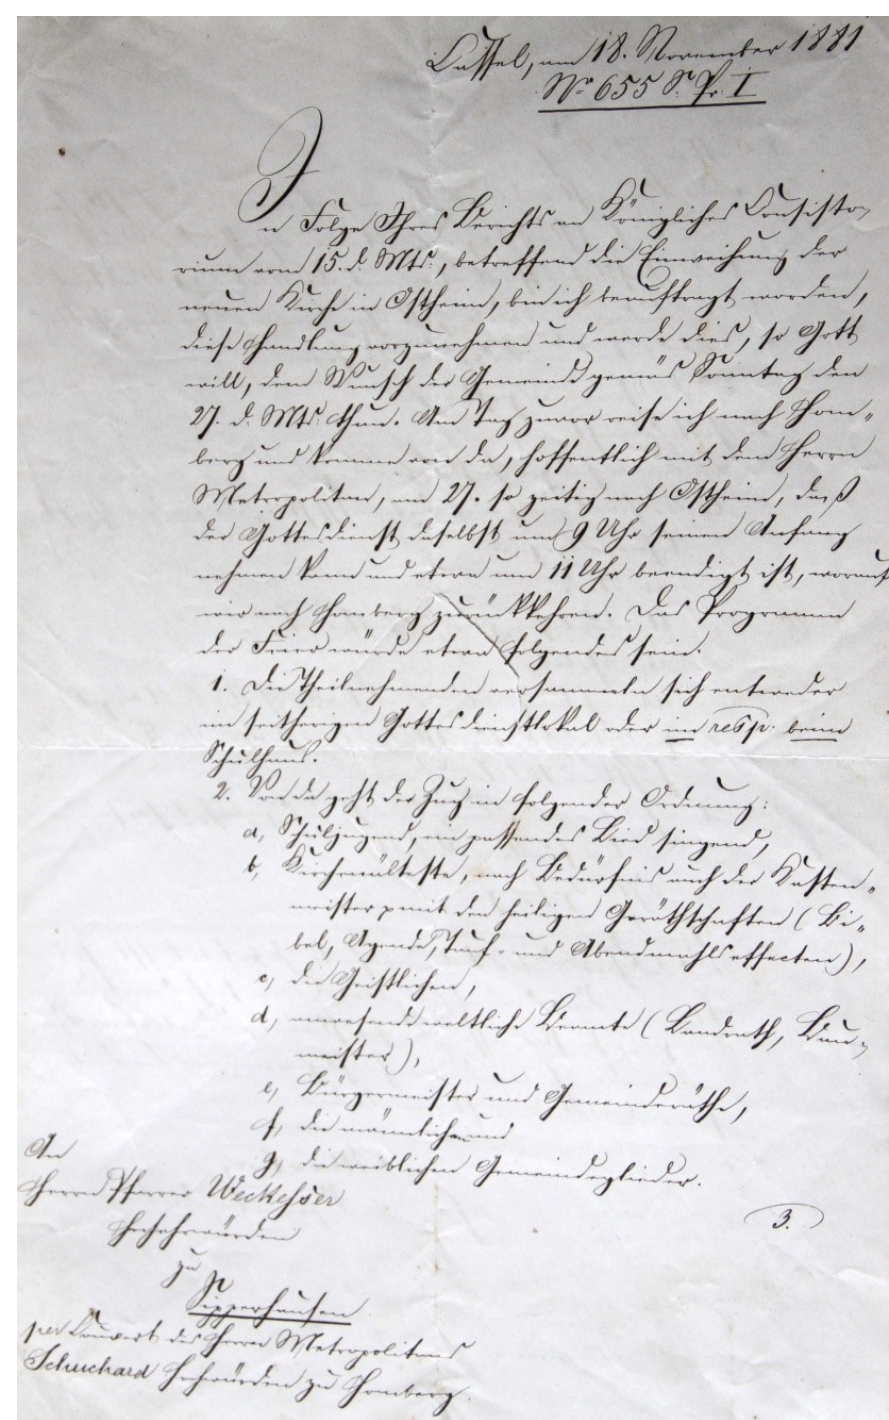 Cassel, am 18. November 1881
No 655 S. Pr. I
In Folge Ihres Berichts an Königliches Consisto-
rium vom 15. d. Mts., betreffend die Einweihung der
neuen Kirche in Ostheim, bin ich beauftragt worden,
diese Handlung vorzunehmen und werde dies, so Gott
will, dem Wunsch der Gemeinde gemäs Sonntag den
27. d. Mts. thun. Am Tag zuvor reise ich nach Hom-
berg und komme von da, hoffentlich mit dem Herrn
Metropolitan, am 27. so zeitig nach Ostheim, daß
der Gottesdienst daselbst um 9 Uhr seinen Anfang
nehmen kann und etwa um 11 Uhr beendigt ist, worauf
wir nach Homberg zurückkehren. Das Programm
der Feier würde etwa folgendes sein.
1. Die Theilnehmenden versammeln sich entweder
im seitherigen Gottesdienstlokal oder im resp. beim
Schulhaus.
2. Von da geht der Zug in folgender Ordnung:
a, Schuljugend, ein passendes Lied singend,
b, Kirchenälteste, nach Bedürfnis auch der Kasten-
meister mit den heiligen Geräthschaften (Bi-
bel, Agende, Tauf- und Abendmahlseffecten),
c, die Geistlichen,
d, anwesende weltliche Beamte (Landrath, Bau-
meister),
e, Bürgermeister und Gemeinderäthe,
f, die männlichen und
g, die weiblichen Gemeindeglieder.
3.
An
Herrn Pfarrer Weckesser
Hochehrwürden
zu
Sipperhausen
per Couvert des Herrn Metropolitans
Schuchard Hochwürden zu Homberg.